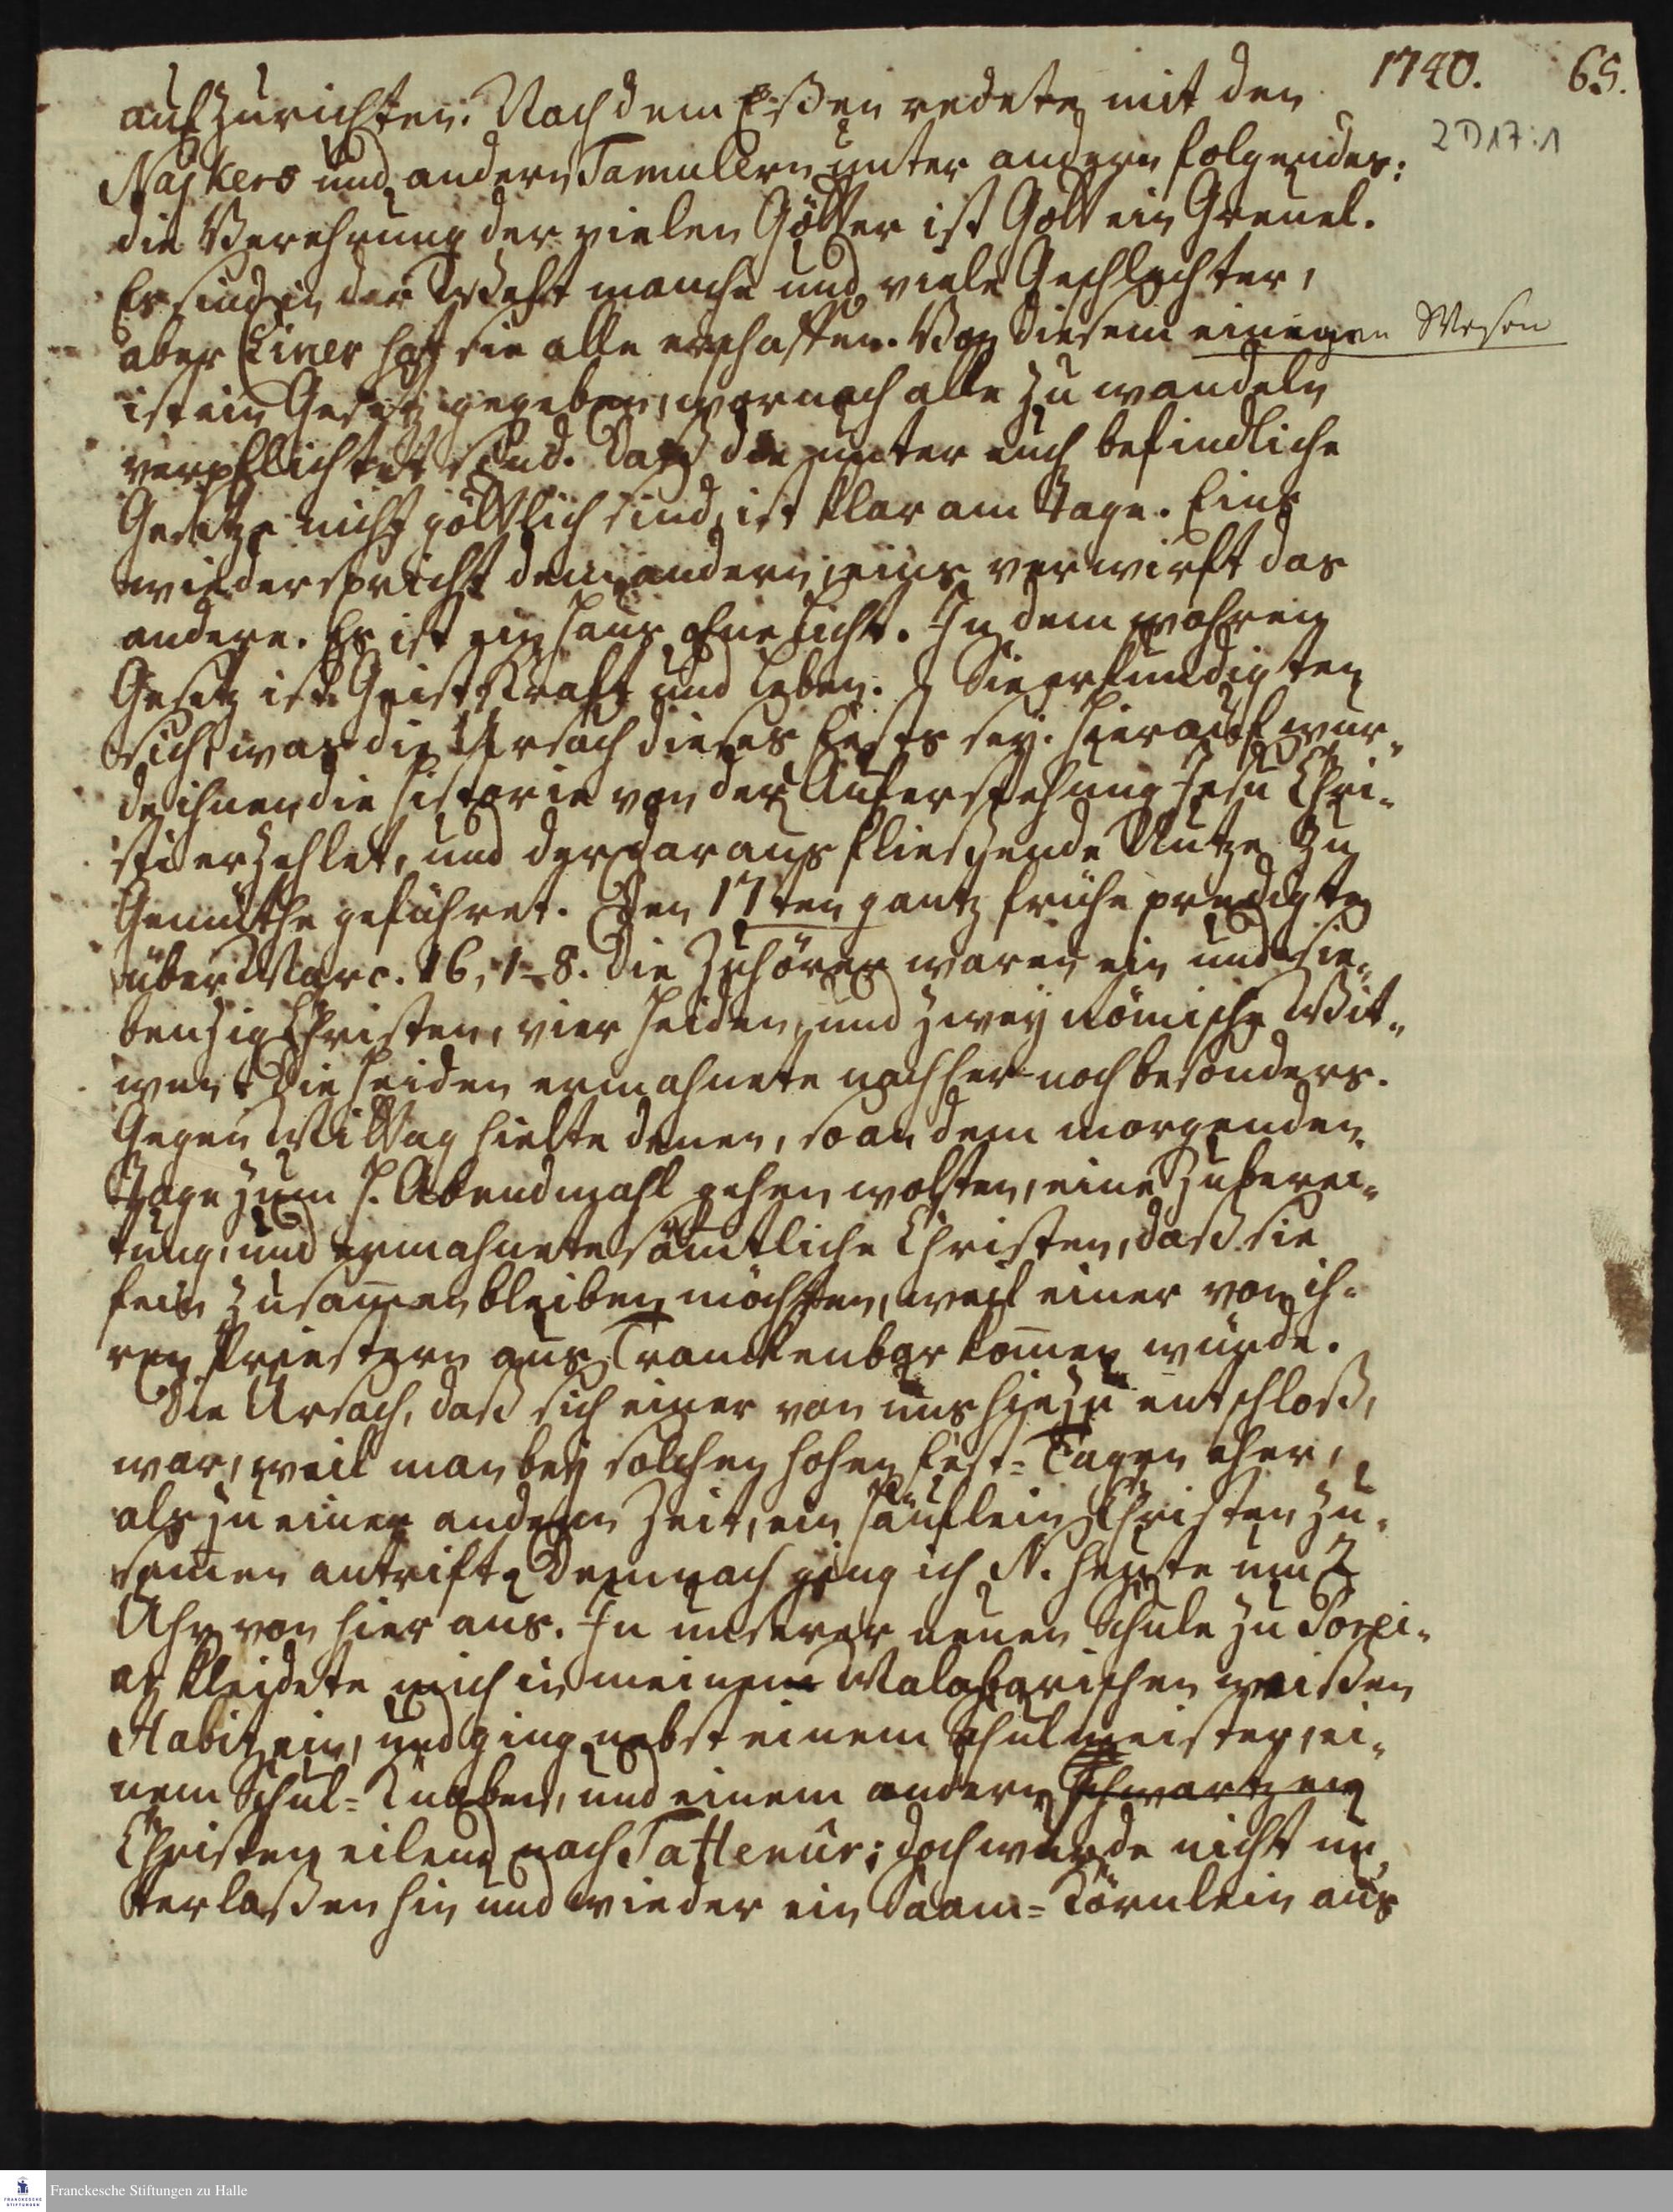 1740. 65.
2 D 17:1
aufzurichten. Nach dem Eßen redete mit den
Najkers und andern Tamulern unter andern folgendes:
die Verehrung der vielen Götter ist Gott ein Greuel.
Es sind in der Welt manche und viele Geschlechter,
aber Einer hat sie alle erschaffen. Von diesem einigen Wesen
ist ein Gesetz gegeben, wornach alle zu wandeln
verpflichtet sind. Daß die unter euch befindliche
Gesetze nicht göttlich sind, ist klar am Tage. Eins
wiederspricht dem andern, eins verwirft das
andere. Es ist ein Haus ohne Licht. In dem wahren
Gesetz ist Geist Kraft und Leben. Sie erkundigten
sich, was die Ursach dieses Fests sey. Hierauf wur-
de ihnen die Historie von der Auferstehung Jesu Chri-
sti erzehlet, und der daraus flieszende Nutze zu
Gemüthe geführet. Den 17ten gantz frühe predigte
über Marc. 16, 1-8. Die Zuhörer waren ein und sie-
benzig Christen, vier Heiden, und zwey römische Wit-
wen. Die Heiden ermahnete nachher noch besonders.
Gegen Mittag hielte denen, so an dem morgenden
Tage zum H. Abendmahl gehen wolten, eine Zuberei-
tung, und ermahnete sämtliche Christen, daß sie
fein zusam̅en bleiben möchten, weil einer von ih-
ren Priestern aus Tranckenbar kom̅en würde.
Die Ursach, daß sich einer von uns hiezu entschloß,
war, weil man bey solchen hohen Fest-Tagen eher,
als zu einer andern Zeit, ein Häuflein Christen zu-
sam̅en antrift. Demnach ging ich N. heute um 2
Uhr von hier aus. In unserer neuen Schule zu Porei-
ar kleidete mich in meinem Malabarischen weißen
Habit ein, und ging nebst einem Schulmeister, ei-
nem Schul-Knaben, und einem andern schwartzen
Christen eilend nach Tattenûr; doch wurde nicht un-
terlaßen hin und wieder ein Saam-Körnlein aus
Franckesche Stiftungen zu Halle